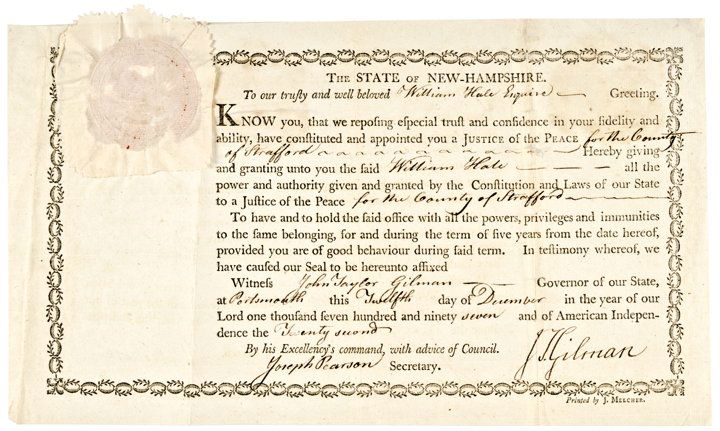 The STATE of NEW-HAMPSHIRE.
To our truſty and well beloved William Hale Esquire Greeting.
KNOW you, that we repoſing eſpecial truſt and confidence in your fidelity and
ability, have conſtituted and appointed you a Justice of the Peace for the County
of Strafford Hereby giving
and granting unto you the ſaid William Hale all the
power and authority given and granted by the Conſtitution and Laws of our State
to a Juſtice of the Peace for the County of Strafford
To have and to hold the ſaid office with all the powers, privileges and immunities
to the ſame belonging, for and during the term of five years from the date hereof,
provided you are of good behaviour during ſaid term. In teſtimony whereof, we
have cauſed our Seal to be hereunto affixed
Witneſs John Taylor Gilman Governor of our State,
at Portsmouth this Twelfth day of December in the year of our
Lord one thouſand ſeven hundred and ninety seven and of American Indepen-
dence the Twenty second
By his Excellency's command, with advice of Council. J T Gilman
Joseph Pearson Secretary.
Printed by J. Melcher.